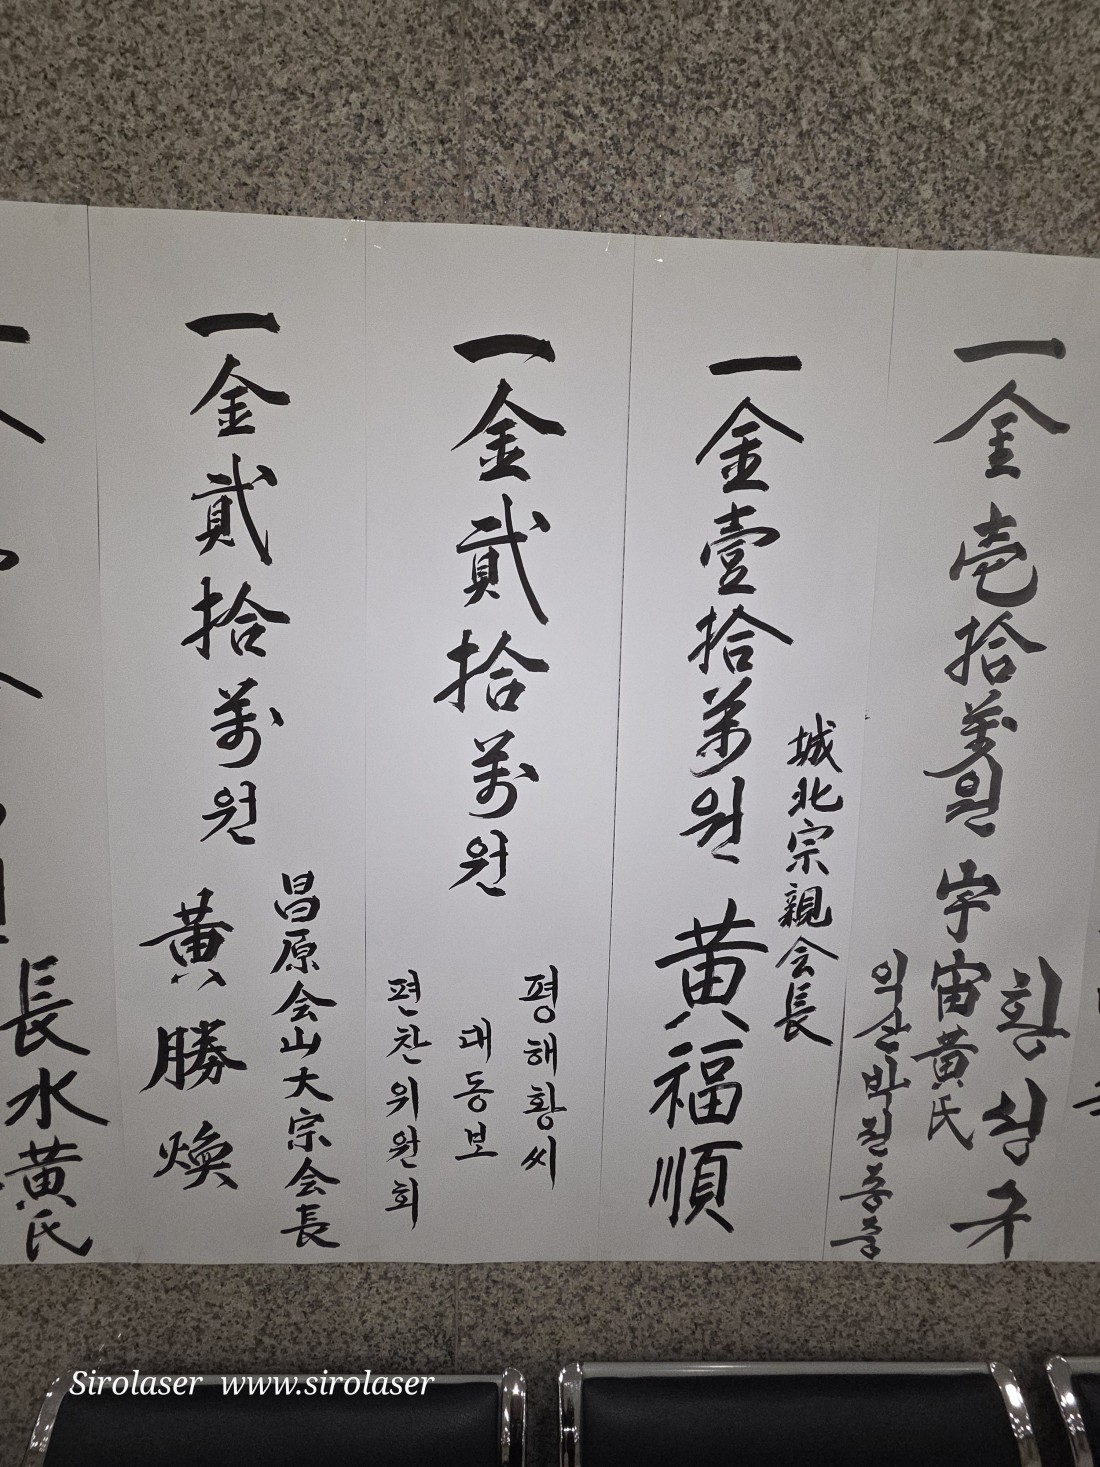 一金壱拾萬원
宇宙黃氏
황상규
익산박진종중
一金壹拾萬원
城北宗親会長
黄福順
一金貳拾萬원
평해황씨
대동보
편찬위원회
一金貳拾萬원
昌原会山大宗会長
黃勝煥
長水黃氏
Sirolaser www.sirolaser